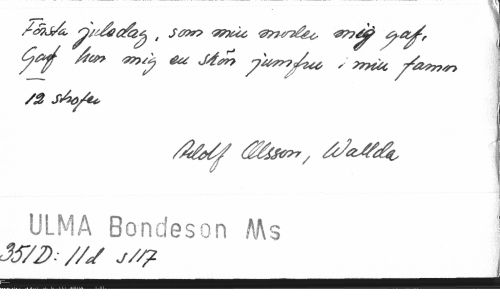 Första juledag, som min moder mig gaf,
Gaf hon mig en skön jumfru i min famn
12 strofer
Adolf Olsson, Wallda
ULMA Bondeson Ms
351D: 11d s117